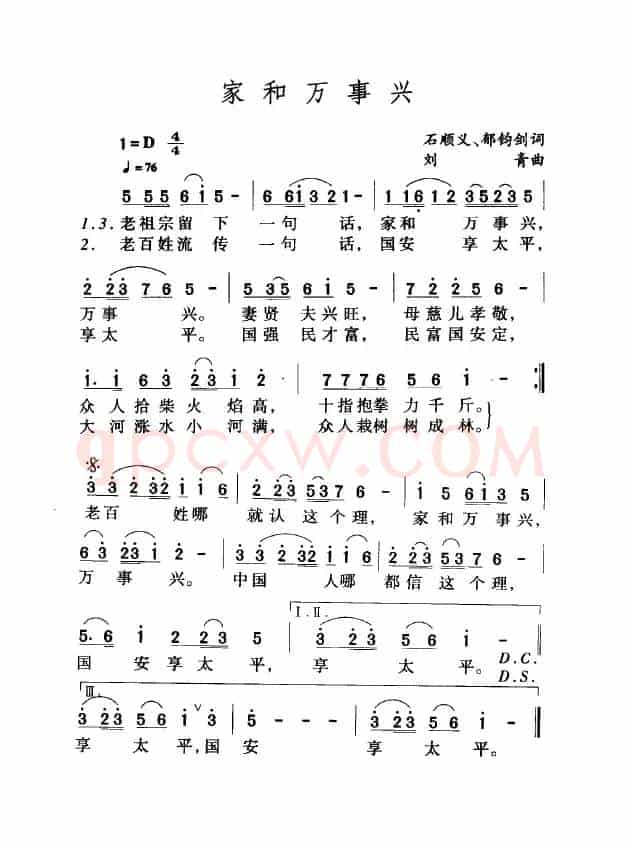 家和万事兴
1=D 4/4 石顺义、郁钧剑词
♩=76 刘青曲
5 5 5 5 6 i 5 - | 6 6 i 3 2 1 - | 1 1 1 6 1 2 3 5 2 3 5 |
1.3.老祖宗留下一句话,家和万事兴,
2.老百姓流传一句话,国安享太平,
2 2 3 7 6 5 - | 5 3 5 6 i 5 - | 7 2 2 5 6 - |
万事兴。妻贤夫兴旺,母慈儿孝敬,
享太平。国强民才富,民富国安定,
i. i 6 3 2 3 i 2 | 7 7 7 7 6 5 6 i - :||
众人拾柴火焰高,十指抱拳力千斤。
大河涨水小河满,众人栽树树成林。
qpcxw.COM
3 3 2 3 2 i i 6 | 2 2 3 5 3 7 6 | 1 5 6 i i 3 5 |
老百姓哪就认这个理,家和万事兴,
6 3 2 3 i 2 - | 3 3 2 3 2 i i 6 | 2 2 3 5 3 7 6 |
万事兴。中国人哪都信这个理,
I.II.
5. 6 i 2 2 2 3 5 | 3 2 3 5 6 i - ||
国安享太平,享太平。D.C.
D.S.
III.
3 2 3 5 6 i ∨ 3 | 5 - - - | 3 2 3 5 6 i - ||
享太平,国安享太平。